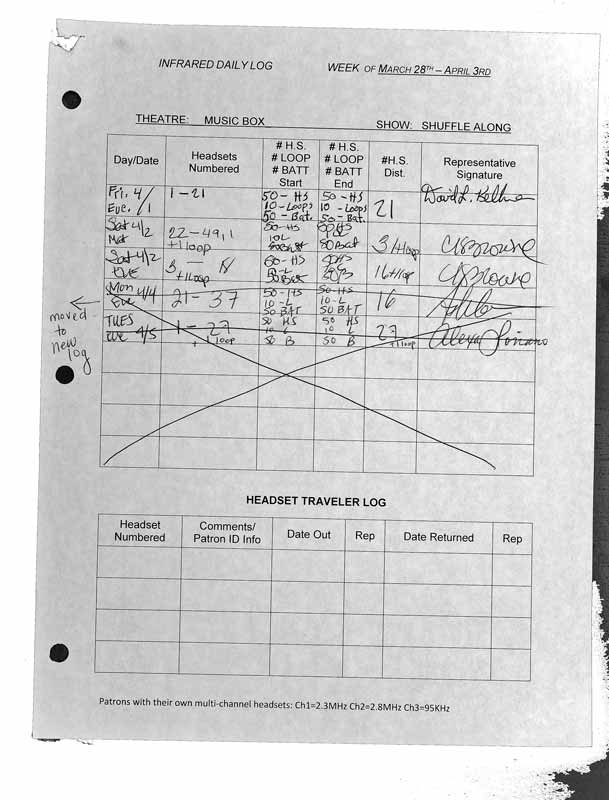 INFRARED DAILY LOG WEEK OF MARCH 28TH – APRIL 3RD
THEATRE: MUSIC BOX SHOW: SHUFFLE ALONG
Day/Date Headsets Numbered # H.S. # LOOP # BATT Start # H.S. # LOOP # BATT End #H.S. Dist. Representative Signature
Fri. 4/1 Eve. 1-21 50-HS 10-Loops 50-Bat. 50-HS 10-Loops 50-Bat. 21 David L.
Sat 4/2 Mat 22-49,1 +1 loop 50-HS 10L 50 Bat 50 Bat 31+loop CBrowne
Sat 4/2 Eve 3 - +1 loop 50-HS 10-L 16+1loop CBrowne
Mon 4/4 Eve 21-37 50-HS 10-L 50 BAT 50-HS 10-L 50 BAT 16
TUES Eve 4/5 1-27 +1 loop 50 HS 10 L 50 B 50 HS 10 L 50 B 27 +1 loop Alexa
moved
to
new
log
HEADSET TRAVELER LOG
Headset Numbered Comments/ Patron ID Info Date Out Rep Date Returned Rep
Patrons with their own multi-channel headsets: Ch1=2.3MHz Ch2=2.8MHz Ch3=95KHz